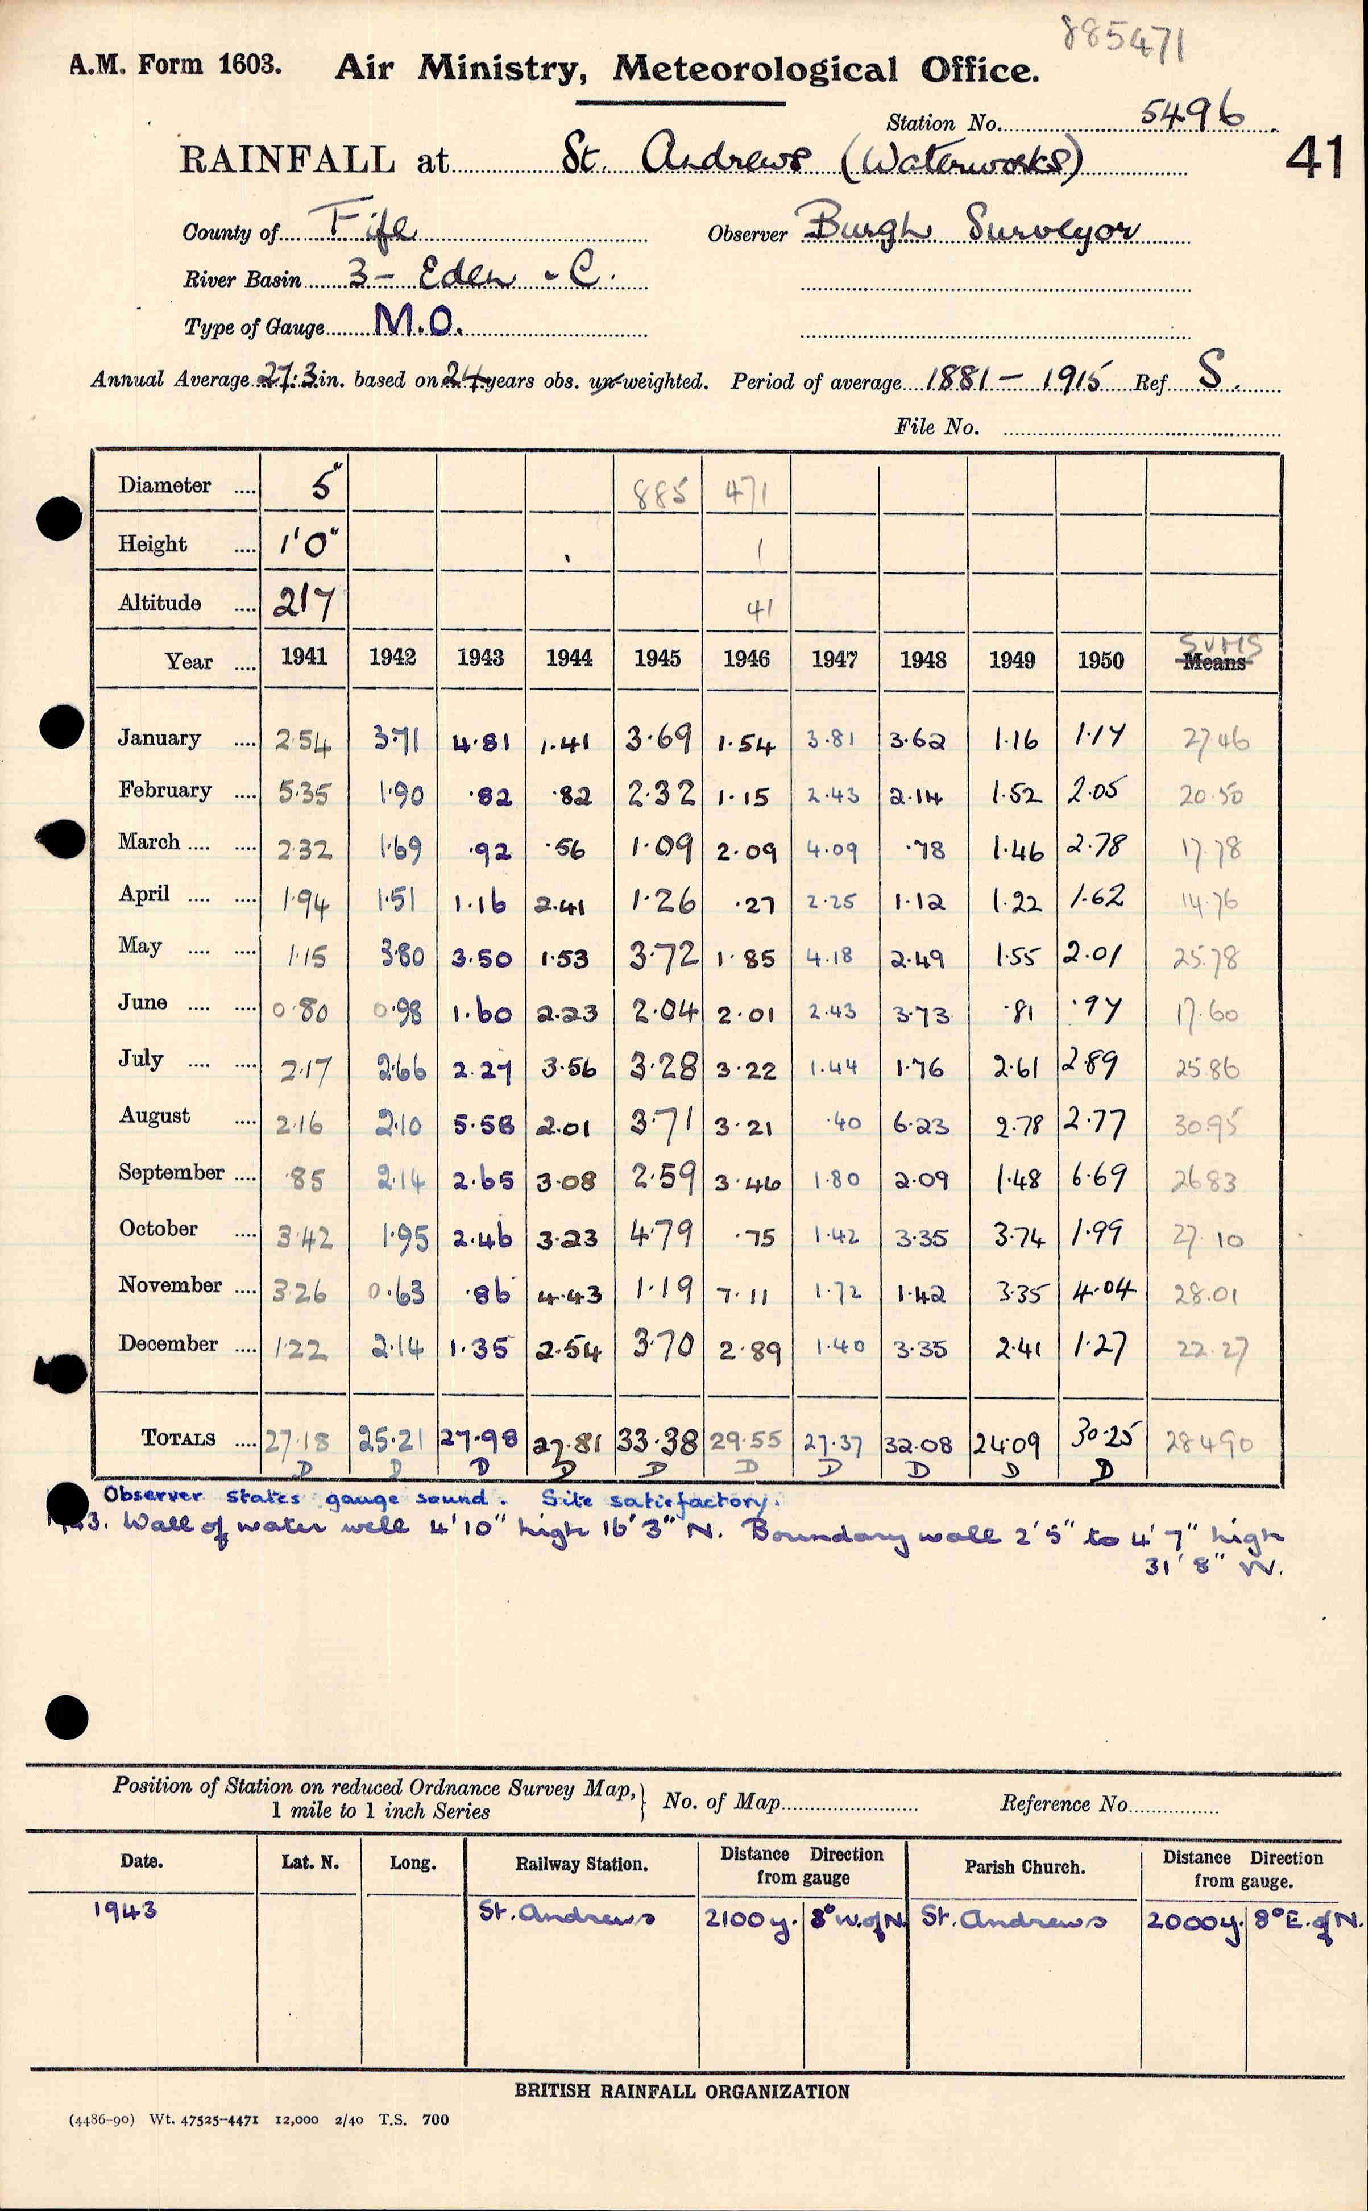 885471
A.M. Form 1603. Air Ministry, Meteorological Office.
Station No. 5496
41
RAINFALL at St. Andrews (Waterworks)
County of Fife Observer Burgh Surveyor
River Basin 3 - Eden - C.
Type of Gauge M.O.
Annual Average 27.3 in. based on 24 years obs. un-weighted. Period of average 1881 - 1915 Ref S.
File No.
Diameter .... 5" 885 471
Height .... 1'0" 1
Altitude .... 217 41
Year .... 1941 1942 1943 1944 1945 1946 1947 1948 1949 1950 SUMS Means
January .... 2.54 3.71 4.81 1.41 3.69 1.54 3.81 3.62 1.16 1.17 27.46
February .... 5.35 1.90 .82 .82 2.32 1.15 2.43 2.14 1.52 2.05 20.50
March .... .... 2.32 1.69 .92 .56 1.09 2.09 4.09 .78 1.46 2.78 17.78
April .... .... 1.94 1.51 1.16 2.41 1.26 .27 2.25 1.12 1.22 1.62 14.76
May .... .... 1.15 3.80 3.50 1.53 3.72 1.85 4.18 2.49 1.55 2.01 25.78
June .... .... 0.80 0.98 1.60 2.23 2.04 2.01 2.43 3.73 .81 .97 17.60
July .... .... 2.17 2.66 2.27 3.56 3.28 3.22 1.44 1.76 2.61 2.89 25.86
August .... 2.16 2.10 5.58 2.01 3.71 3.21 .40 6.23 2.78 2.77 30.95
September .... .85 2.14 2.65 3.08 2.59 3.46 1.80 2.09 1.48 6.69 26.83
October .... 3.42 1.95 2.46 3.23 4.79 .75 1.42 3.35 3.74 1.99 27.10
November .... 3.26 0.63 .86 4.43 1.19 7.11 1.72 1.42 3.35 4.04 28.01
December .... 1.22 2.14 1.35 2.54 3.70 2.89 1.40 3.35 2.41 1.27 22.27
TOTALS .... 27.18 25.21 27.98 27.81 33.38 29.55 27.37 32.08 24.09 30.25 284.90
D D D D D D D D D D
Observer states gauge sound. Site satisfactory.
43. Wall of water well 4'10" high 16'3" N. Boundary wall 2'5" to 4'7" high
31'8" W.
Position of Station on reduced Ordnance Survey Map,
1 mile to 1 inch Series } No. of Map Reference No.
Date. Lat. N. Long. Railway Station. Distance Direction from gauge Parish Church. Distance Direction from gauge.
1943 St. Andrews 2100y. 8° W. of N. St. Andrews 2000y. 8° E. of N.
BRITISH RAINFALL ORGANIZATION
(4486-90) Wt. 47525-4471 12,000 2/40 T.S. 700